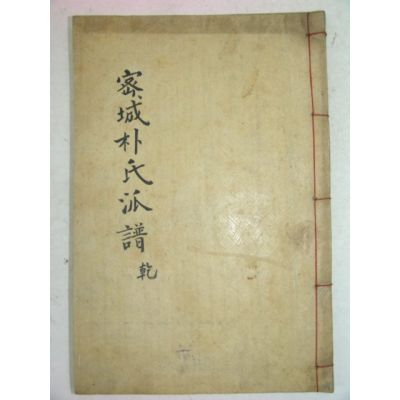 密城朴氏派譜 乾